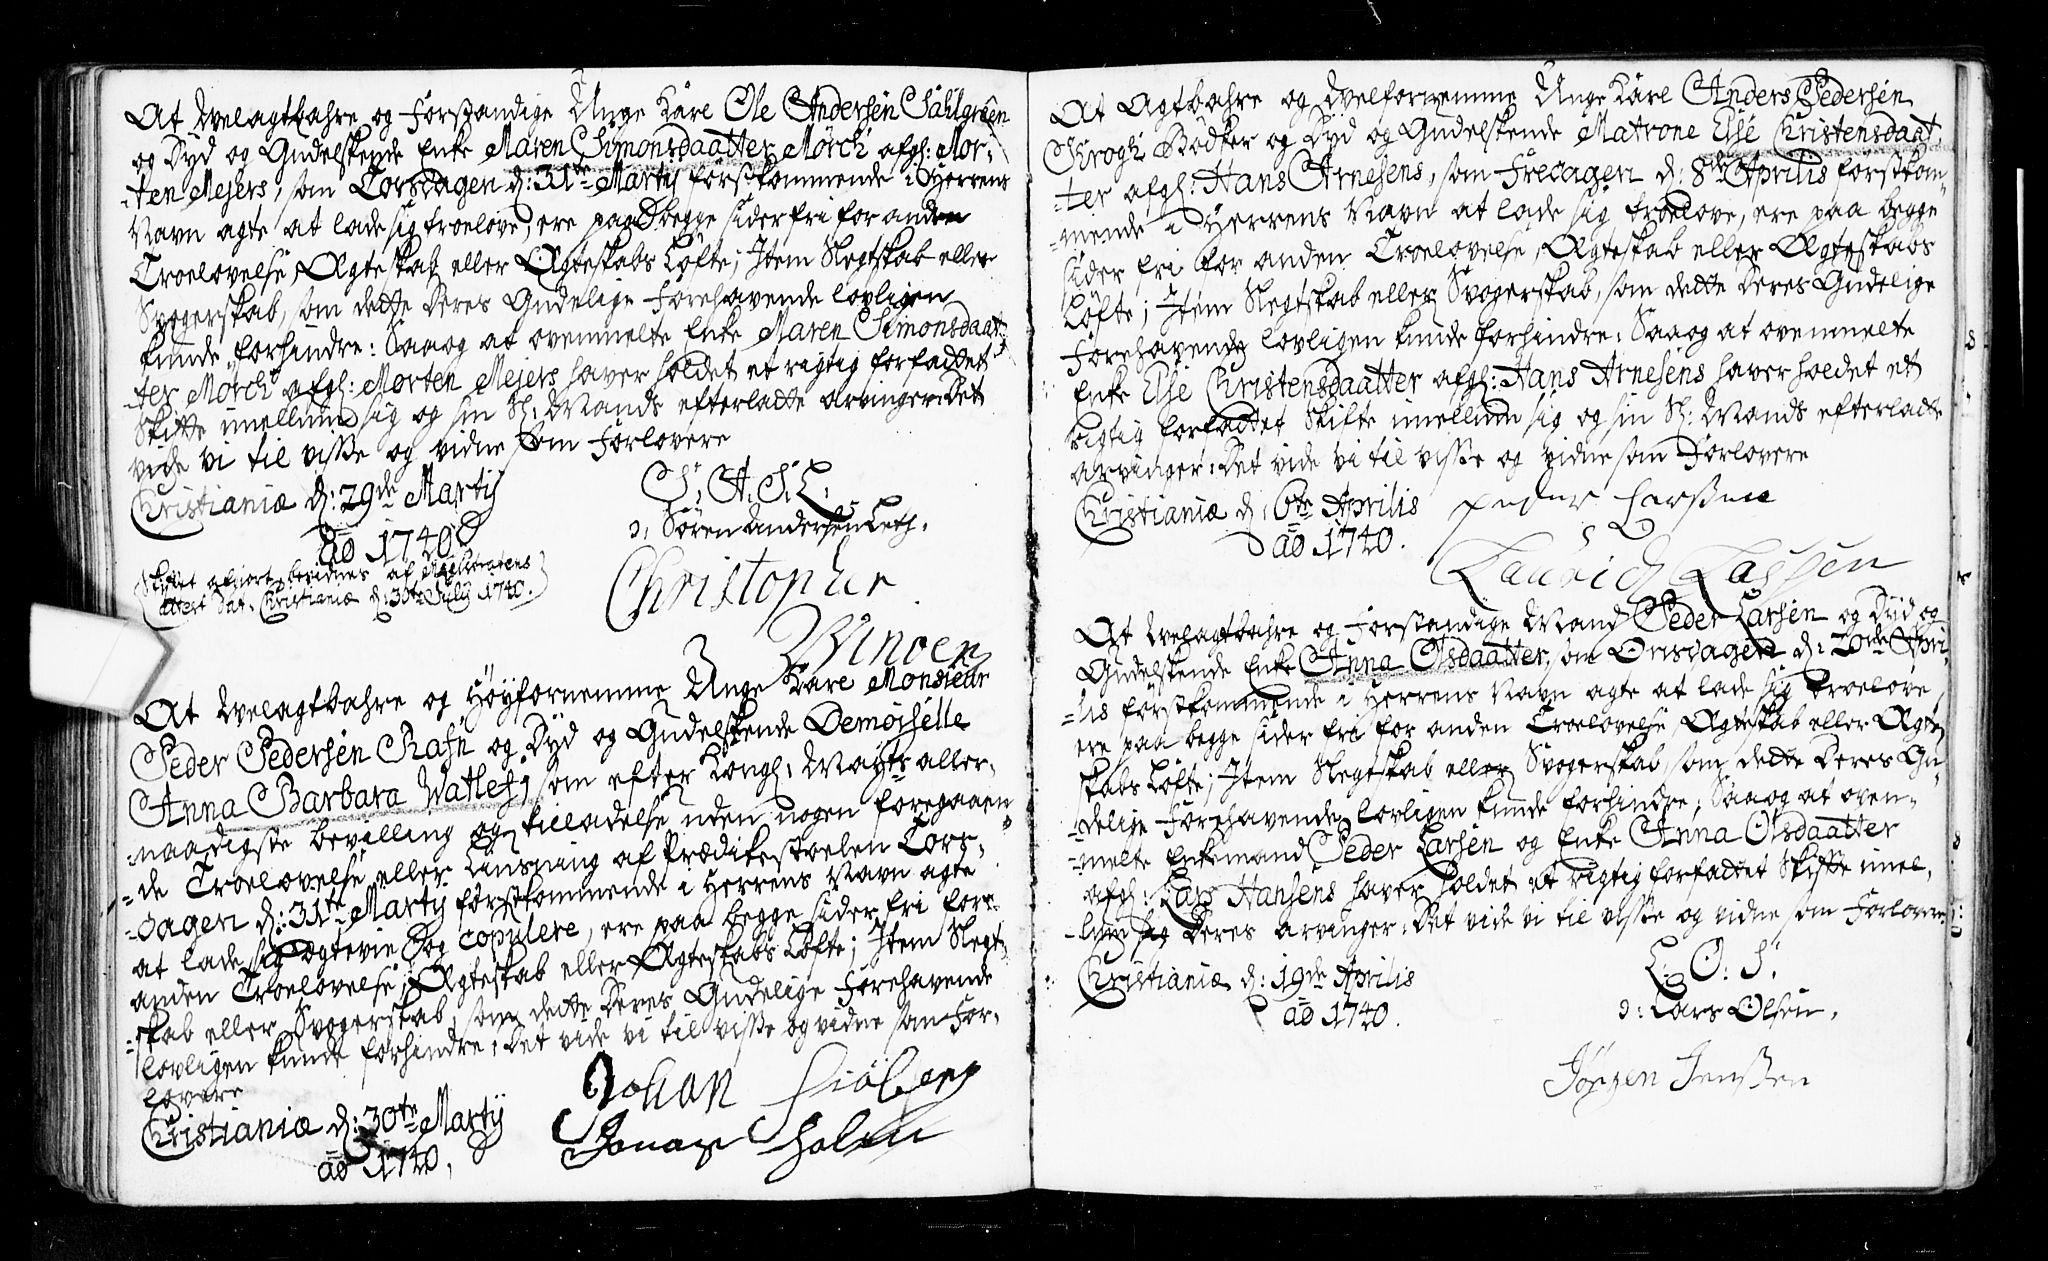 At Velagtbahre og Forstandige Unge Karl Ole Andersen Sahlgreen
og Dyd og Gudelskende Enke Maren Simonsdaatter Mörch afgl: Mor-
-ten Mejers, som Torsdagen d: 31te Martij förstkommende i Herrens
Navn agte at lade sig troelove, ere paa begge sider fri for anden
Troelovelse, Ægteskab eller Ægteskabs Löfte; Item Slegtskab eller
Svogerskab, som dette Deres Gudelige Forehavende lovligen
kunde forhindre: Saa og at ovenmelte Enke Maren Simonsdaat-
-ter Mörch afgl: Morten Mejers haver holdet et rigtig forfattet
Skifte imellum sig og sin Sl: Mands efterladte arvinger: Det
vide vi til visse og vidne som Forlovere
Christianiæ d: 29de Martij
ao 1740
S. A. S. L.
ɔ: Sören Andersen Leth.
Skiftet afgiort bevidnes af Magistratens
Attest Dat. Christianiæ d: 30te Julij 1740.
Christopher
Winoer
At Velagtbahre og Höyfornemme Unge Karl Monsieur
Peder Pedersen Rafn og Dyd og Gudelskende Demoiselle
Anna Barbara Watles; som efter Kongl: Mayts aller-
-naadigste bevilling og tilladelse uden nogen foregaaen-
-de Troelovelse eller Liusning af Prædikestoelen Tors-
-dagen d: 31te Martij förstkommende i Herrens Navn agte
at lade sig ægtevie og copulere, ere paa begge sider fri for
anden Troelovelse, Ægteskab eller Ægteskabs Löfte; Item Slegt-
-skab eller Svogerskab, som dette Deres Gudelige Forehavende
lovligen kunde forhindre: Det vide vi til visse og vidne som For-
lovere
Christianiæ d: 30te Martij
ao 1740.
Johan Siöberg
Jonas Holm
At Agtbahre og Velfornemme Unge Karl Anders Pedersen
Krogh Bödker og Dyd og Gudelskende Matrone Else Christensdaat-
-ter afgl: Hans Arnesens, som Fredagen d: 8de Aprilis förstkom-
-mende i Herrens Navn at lade sig troelove, ere paa begge
sider fri for anden Troelovelse, Ægteskab eller Ægteskabs
Löfte; Item Slegtskab eller Svogerskab, som dette Deres Gudelige
Forehavende lovligen kunde forhindre: Saa og at ovenmelte
Enke Else Christensdaatter afgl: Hans Arnesens haver holdet et
rigtig forfattet Skifte imellum sig og sin Sl: Mands efterladte
arvinger: Det vide vi til visse og vidne som Forlovere
Christianiæ d: 6te Aprilis
ao 1740.
peder Larssen
Lauridz Lassen
At Velagtbahre og Forstandige Mand Peder Larsen og Dyd og
Gudelskende Enke Anna Olsdaatter, som Onsdagen d: 20de Apri-
-lis förstkommende i Herrens Navn agte at lade sig troelove
ere paa begge sider fri for anden Troelovelse, Ægteskab eller Ægte-
skabs Löfte; Item Slegtskab eller Svogerskab, som dette Deres Gu-
-delige Forehavende lovligen kunde forhindre; Saa og at oven-
-melte Enkemand Peder Larsen og Enke Anna Olsdaatter
afgl: Lars Hansens haver holdet et rigtig forfattet Skifte imel-
-lum sig Deres arvinger: Det vide vi til visse og vidne som Forlovere:
Christianiæ d: 19de Aprilis
ao 1740.
L. O. S.
ɔ: Lars Olsen.
Jörgen Jenssen